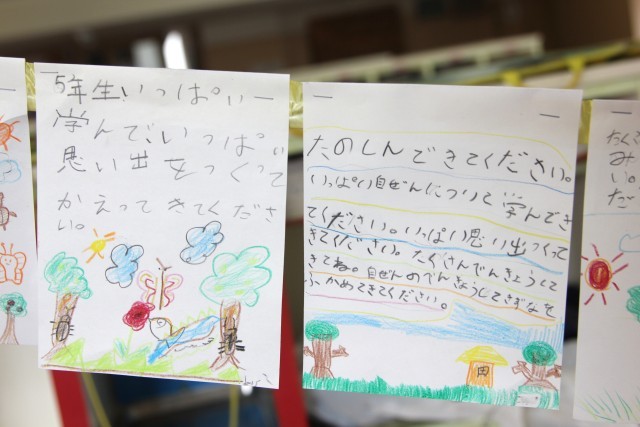 5年生いっぱい
学んで、いっぱい
思い出をつくって
かえってきてくださ
い。
たのしんできてください。
いっぱい自ぜんについて学んでき
てください。いっぱい思い出つくって
きてください。たくさんでんきょうして
きてね。自ぜんのべんきょうしてきずなを
ふかめてきてください。
たくさ
み
い。
た